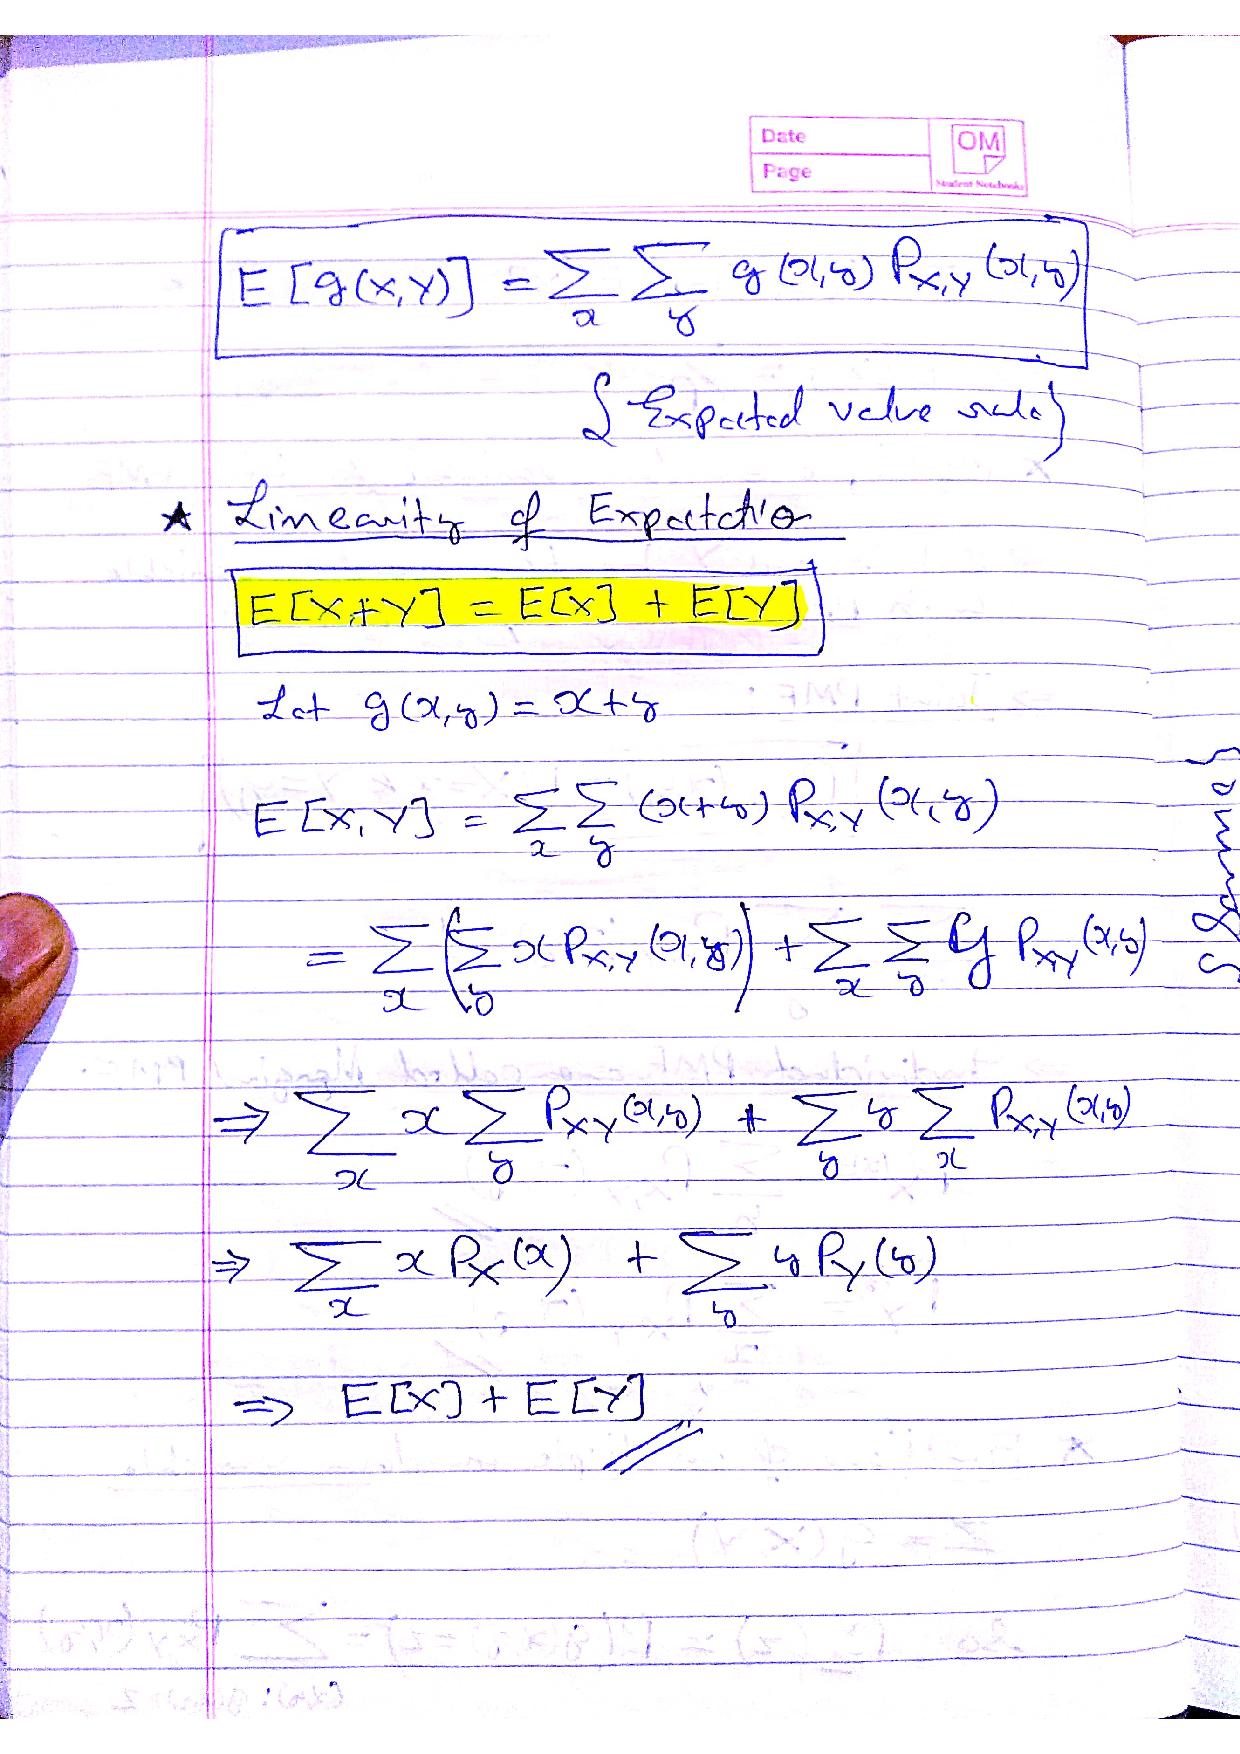 Date
Page
OM
Student Notebooks
E[g(X,Y)] = Σ_x Σ_y g(x,y) P_{X,Y}(x,y)
{Expected value rule}
★ Linearity of Expectatio
E[X+Y] = E[X] + E[Y]
Let g(x,y) = x+y
E[X,Y] = Σ_x Σ_y (x+y) P_{X,Y}(x,y)
= Σ_x (Σ_y x P_{X,Y}(x,y)) + Σ_x Σ_y y P_{XY}(x,y)
⇒ Σ_x x Σ_y P_{XY}(x,y) + Σ_y y Σ_x P_{X,Y}(x,y)
⇒ Σ_x x P_X(x) + Σ_y y P_Y(y)
⇒ E[X] + E[Y]